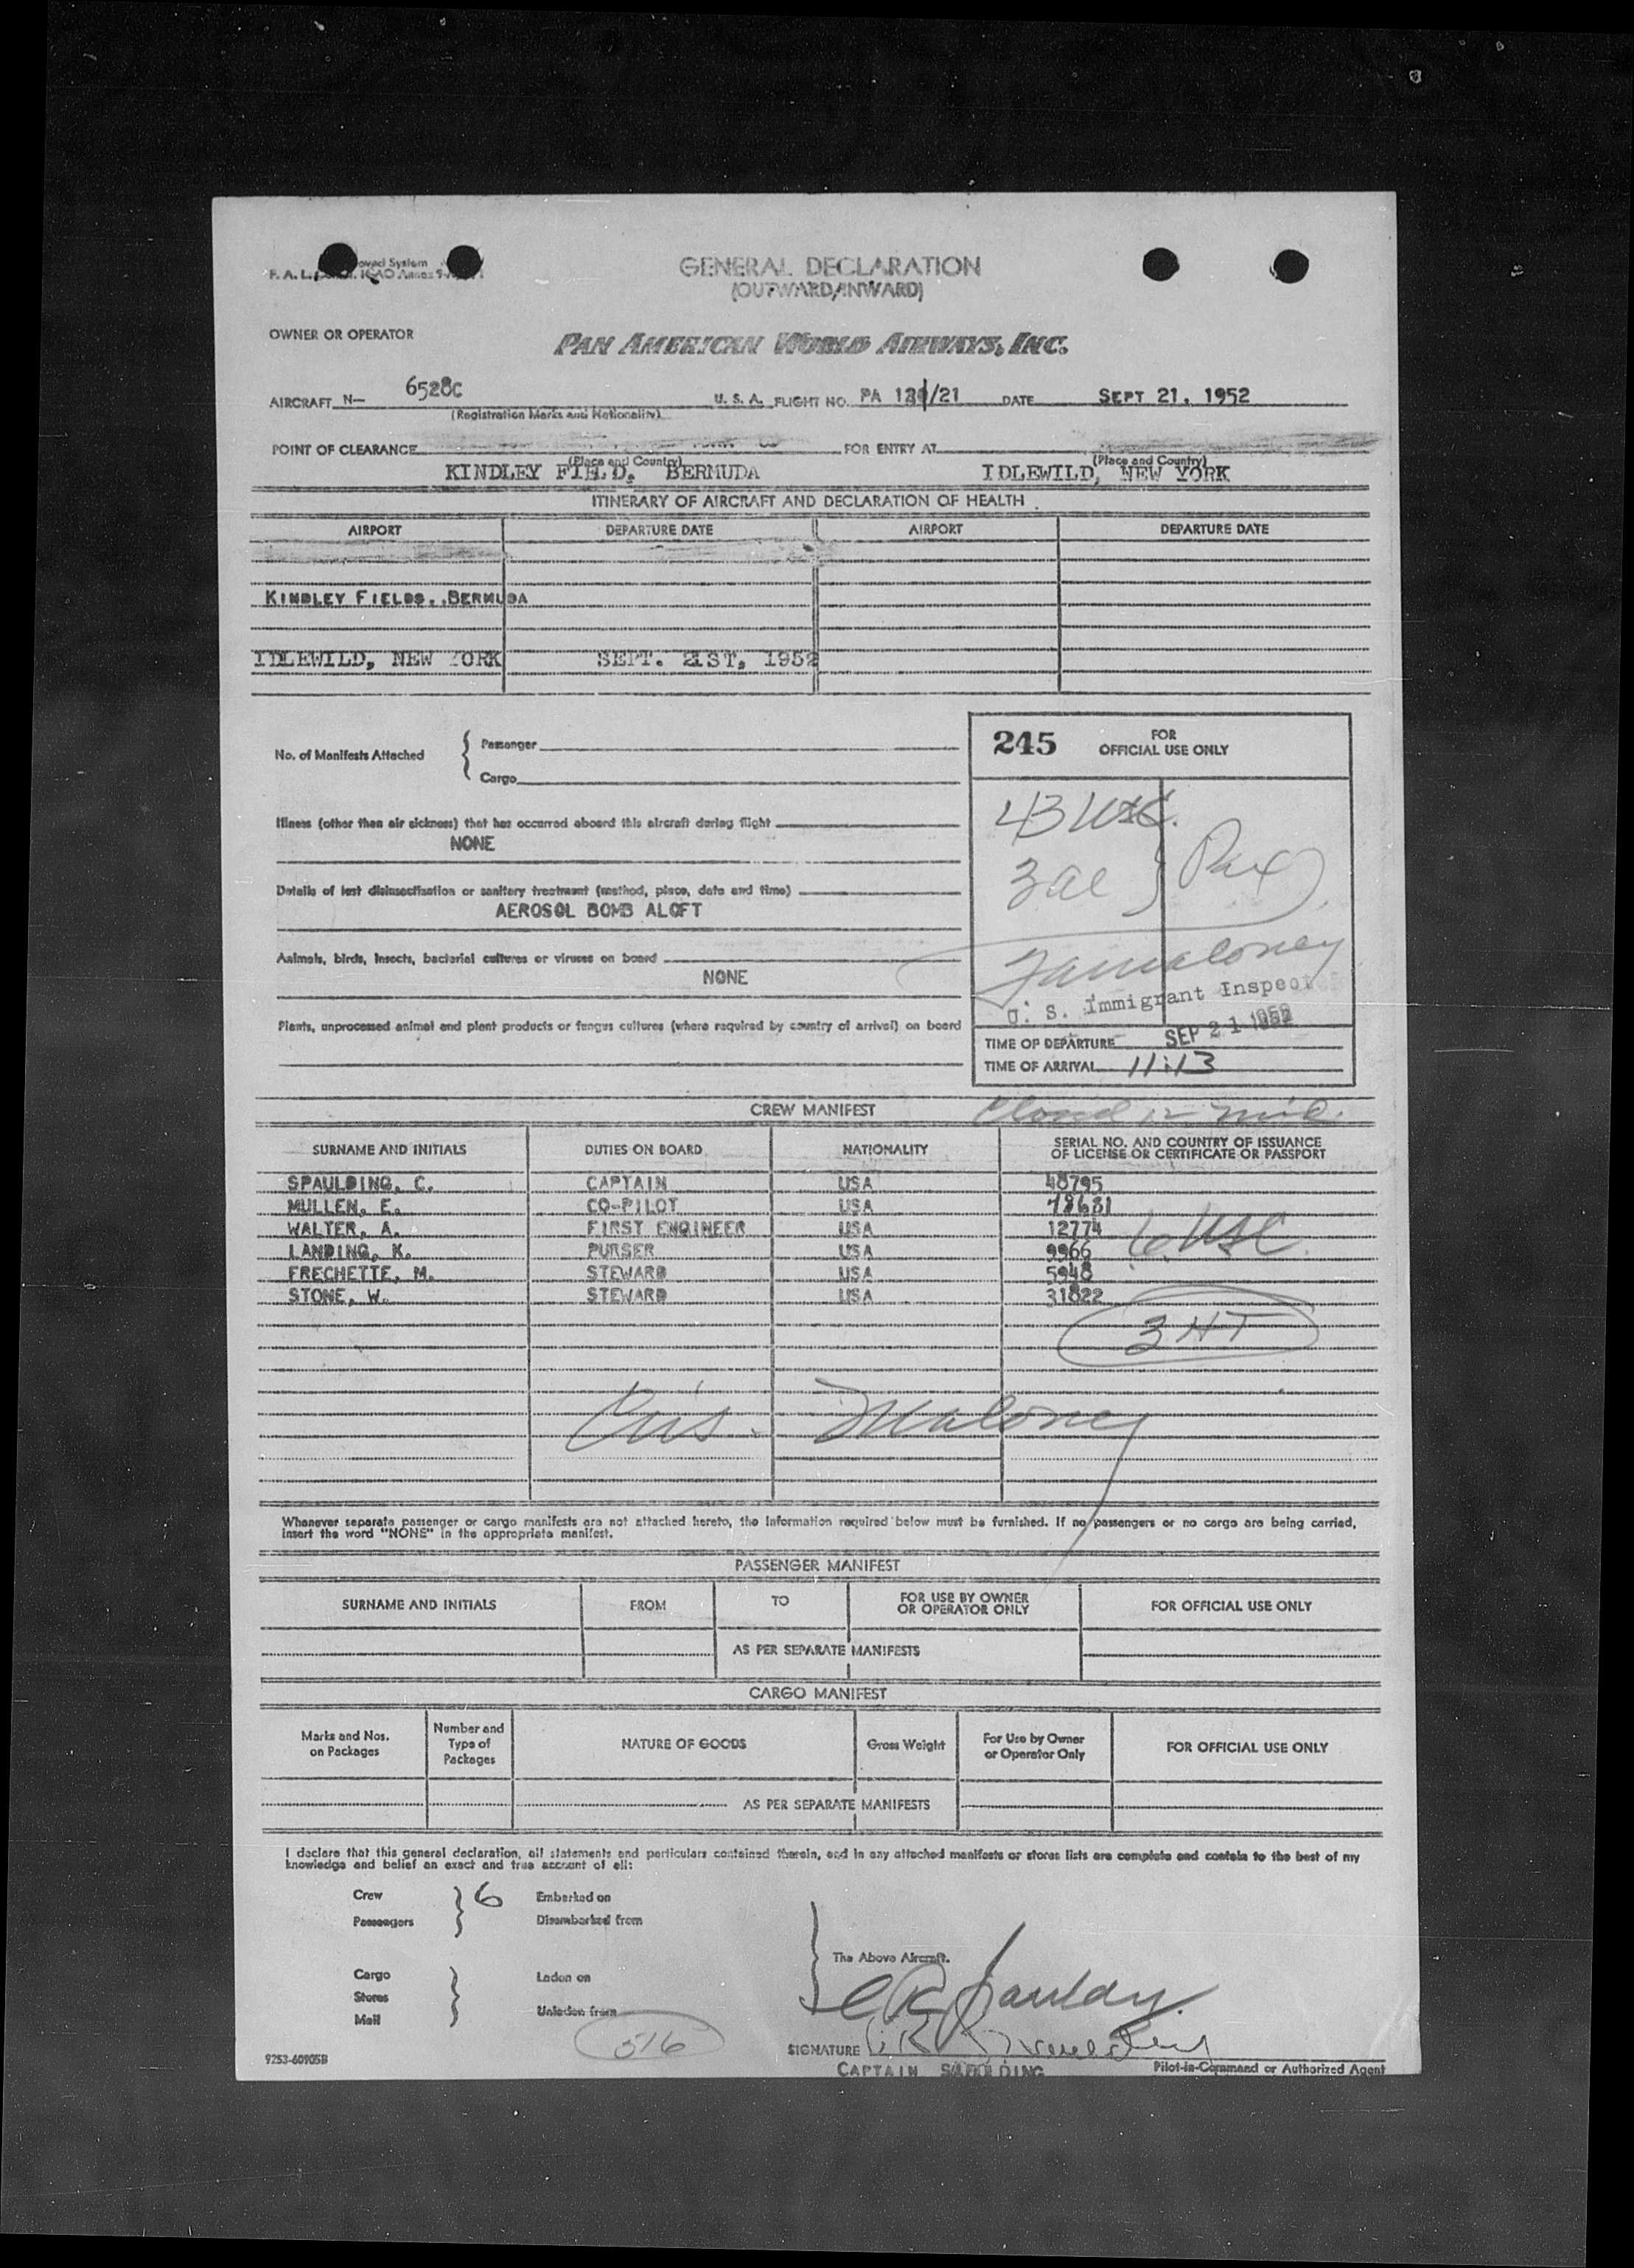 oved System
F. A. L. ICAO Annex 9
GENERAL DECLARATION
(OUTWARD/INWARD)
OWNER OR OPERATOR
PAN AMERICAN WORLD AIRWAYS, INC.
AIRCRAFT N— 6528C U. S. A. FLIGHT NO. PA /21 DATE SEPT 21, 1952
(Registration Marks and Nationality)
POINT OF CLEARANCE FOR ENTRY AT
(Place and Country) (Place and Country)
KINDLEY FIELD, BERMUDA IDLEWILD, NEW YORK
ITINERARY OF AIRCRAFT AND DECLARATION OF HEALTH
AIRPORT DEPARTURE DATE AIRPORT DEPARTURE DATE
KINDLEY FIELDS, BERMUDA
IDLEWILD, NEW YORK SEPT. 21ST, 1952
No. of Manifests Attached { Passenger
Cargo
245 FOR
OFFICIAL USE ONLY
43 USC.
3 al } Pax
Illness (other than air sickness) that has occurred aboard this aircraft during flight
NONE
Details of last disinsectisation or sanitary treatment (method, place, date and time)
AEROSOL BOMB ALOFT
Animals, birds, insects, bacterial cultures or viruses on board
NONE
Plants, unprocessed animal and plant products or fungus cultures (where required by country of arrival) on board
Maloney
U. S. Immigrant Inspector
SEP 21 1952
TIME OF DEPARTURE
TIME OF ARRIVAL 11:13
CREW MANIFEST
SURNAME AND INITIALS DUTIES ON BOARD NATIONALITY SERIAL NO. AND COUNTRY OF ISSUANCE
OF LICENSE OR CERTIFICATE OR PASSPORT
SPAULDING, C. CAPTAIN USA 48795
MULLEN, E. CO-PILOT USA
WALTER, A. FIRST ENGINEER USA 12774
LANDING, K. PURSER USA 9966 6 USC
FRECHETTE, M. STEWARD USA 5948
STONE, W. STEWARD USA 31822
3 HT
Maloney
Whenever separate passenger or cargo manifests are not attached hereto, the information required below must be furnished. If no passengers or no cargo are being carried,
insert the word "NONE" in the appropriate manifest.
PASSENGER MANIFEST
SURNAME AND INITIALS FROM TO FOR USE BY OWNER
OR OPERATOR ONLY FOR OFFICIAL USE ONLY
AS PER SEPARATE MANIFESTS
CARGO MANIFEST
Marks and Nos.
on Packages Number and
Type of
Packages NATURE OF GOODS Gross Weight For Use by Owner
or Operator Only FOR OFFICIAL USE ONLY
AS PER SEPARATE MANIFESTS
I declare that this general declaration, all statements and particulars contained therein, and in any attached manifests or stores lists are complete and contain to the best of my
knowledge and belief an exact and true account of all:
Crew } 6 Embarked on
Passengers Disembarked from
The Above Aircraft.
Cargo Laden on
Stores
Mail Unladen from
516
SIGNATURE
CAPTAIN SPAULDING Pilot-in-Command or Authorized Agent
9253-60905B